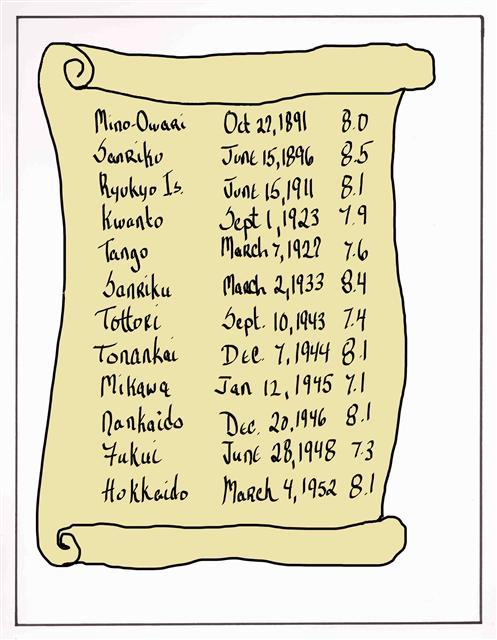 Mino-Owari Oct 27, 1891 8.0
Sanriku June 15, 1896 8.5
Ryukyo Is. June 15, 1911 8.1
Kwanto Sept 1, 1923 7.9
Tango March 7, 1927 7.6
Sanriku March 2, 1933 8.4
Tottori Sept. 10, 1943 7.4
Tonankai Dec. 7, 1944 8.1
Mikawa Jan 12, 1945 7.1
Nankaido Dec. 20, 1946 8.1
Fukui June 28, 1948 7.3
Hokkaido March 4, 1952 8.1